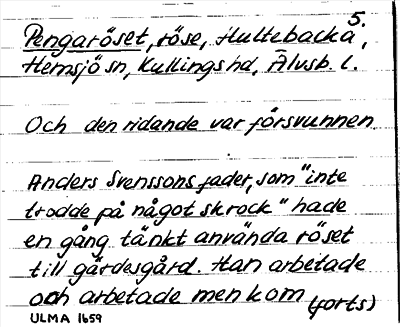 5.
Pengaröset, röse, Hultebacka,
Hemsjö sn, Kullings hd, Älvsb. l.
Och den ridande var försvunnen
Anders Svenssons fader, som "inte
trodde på något skrock" hade
en gång tänkt använda röset
till gärdesgård. Han arbetade
och arbetade men kom (forts)
ULMA 1659